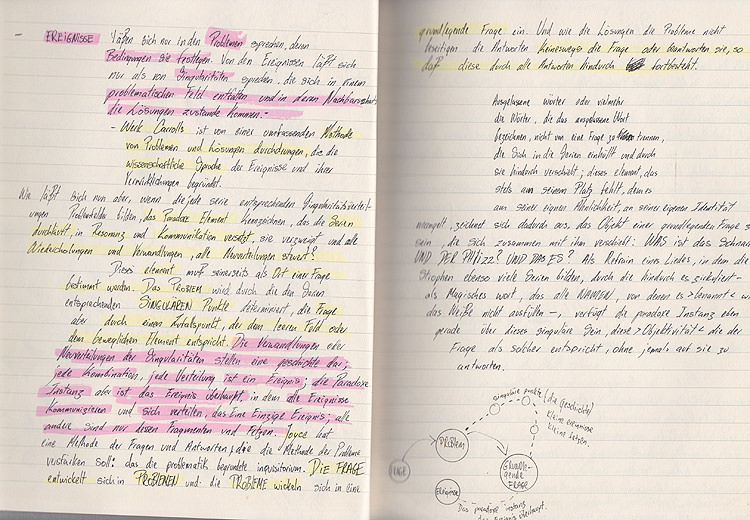 - EREIGNISSE läßen sich nur in den Problemen sprechen, deren
Bedingungen sie festlegen. Von den Ereignissen läßt sich
nur als von Singularitäten sprechen, die sich in einem
problematischen Feld entfalten und in deren Nachbarschaft
die Lösungen zustande kommen.-
- Werk Carrolls ist von einer umfassenden Methode
von Problemen und Lösungen durchdrungen, die die
wissenschaftliche Sprache der Ereignisse und ihrer
Verwirklichungen begründet.
Wie läßt sich nun aber, wenn die jede serie entsprechenden Singularitätsverteil-
ungen Problemfelder bilden, das Paradoxe Element kennzeichnen, das die Serien
durchläuft, in Resonanz und Kommunikation versetzt, sie verzweigt und alle
Wiederholungen und Verwandlungen, alle Neuverteilungen steuert?
Dieses element muß seinerseits als Ort einer Frage
bestimmt werden. Das PROBLEM wird durch die den Serien
entsprechenden SINGULÄREN Punkte determiniert, die Frage
aber durch einen Zufallspunkt, der dem leeren Feld oder
dem beweglichen Element entspricht. Die Verwandlungen oder
Neuverteilungen der Singularitäten stellen eine geschichte dar;
jede Kombination, jede Verteilung ist ein Ereignis; die Paradoxe
Instanz aber ist das Ereignis überhaupt, in dem alle Ereignisse
Kommunizieren und sich verteilen, das Eine Einzige Ereignis; alle
andere sind nur dessen Fragmenten und Fetzen. Joyce hat
eine Methode der Fragen und Antworten, die eine Methode der Probleme
verstärken soll: das die problematik begründete inquisitorium. DIE FRAGE
entwickelt sich in PROBLEMEN und die PROBLEME wickeln sich in eine
grundlegende Frage ein. Und wie die Lösungen die Probleme nicht
beseitigen die Antworten keineswegs die Frage oder beantworten sie, so
daß diese durch alle Antworten hindurch fortbesteht.
Ausgelassene wörter oder vielmehr
die Wörter, die das ausgelassene Wort
bezeichnen, nicht von eine Frage zu trennen,
die sich in die Serien einhüllt und durch
sie hindurch verschiebt; dieses element, das
stets an seinem Platz fehlt, dem es
an seiner eignen Ähnlichkeit, an seiner eigenen Identität
mangelt, zeichnet sich dadurch aus, das Objekt einer grundlegenden Frage zu
sein, die sich zusammen mit ihm verschiebt: WAS ist das Schnark
UND DER PHLIZZ? UND DAS ES? Als Refrain eines Liedes, in dem die
Strophen ebenso viele Serien bilden, durch die hindurch es zirkuliert -
als Magisches wort, das alle NAMEN, von denen es >benannt< wird
das Weiße nicht ausfüllen -, verfügt die paradoxe Instanz eben
gerade über dieses singuläre Sein, diese >Objektivität< die der
Frage als solcher entspricht, ohne jemals auf sie zu
antworten.
singuläre punkte (die Geschichte)
kleine ereignisse
kleine fetzen.
PROBLEM
GRUNDLE-
gende
FRAGE
Das paradoxe instanz
das Ereignis überhaupt.